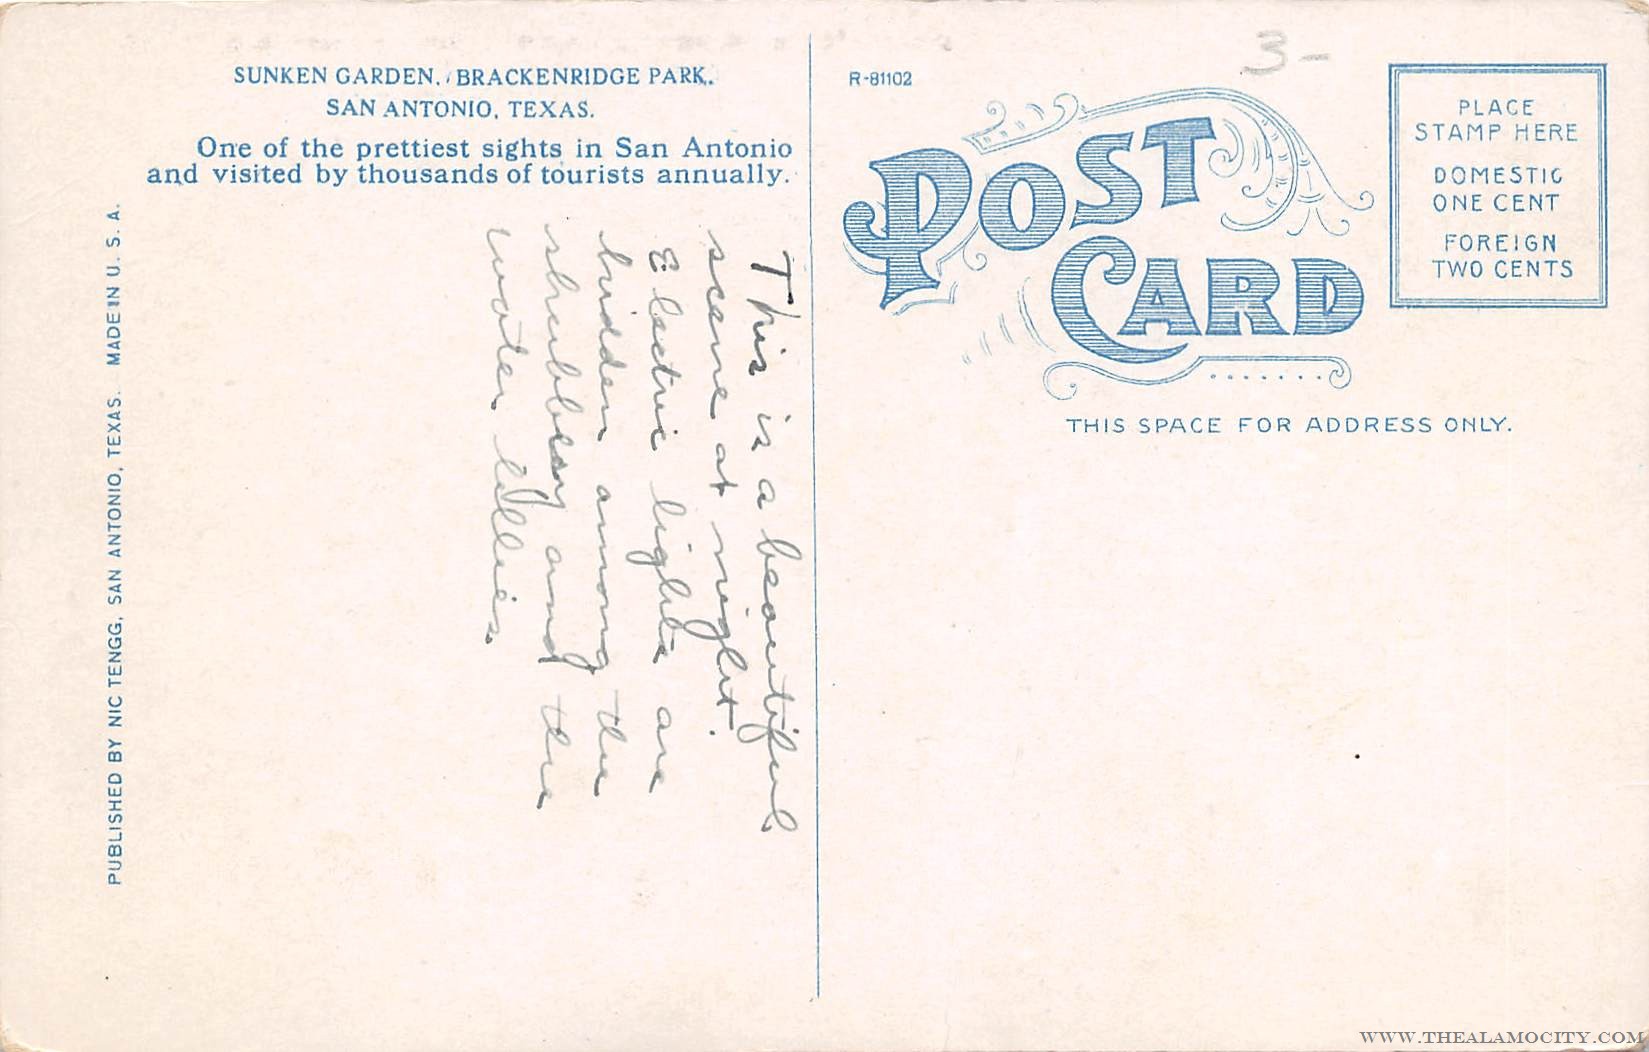 SUNKEN GARDEN, BRACKENRIDGE PARK.
SAN ANTONIO, TEXAS.
One of the prettiest sights in San Antonio
and visited by thousands of tourists annually.
This is a beautiful
scene at night.
Electric lights are
hidden among the
shrubbery and the
water lillies.
PUBLISHED BY NIC TENGG, SAN ANTONIO, TEXAS. MADE IN U. S. A.
R-81102
3-
POST
CARD
THIS SPACE FOR ADDRESS ONLY.
PLACE
STAMP HERE
DOMESTIC
ONE CENT
FOREIGN
TWO CENTS
WWW.THEALAMOCITY.COM